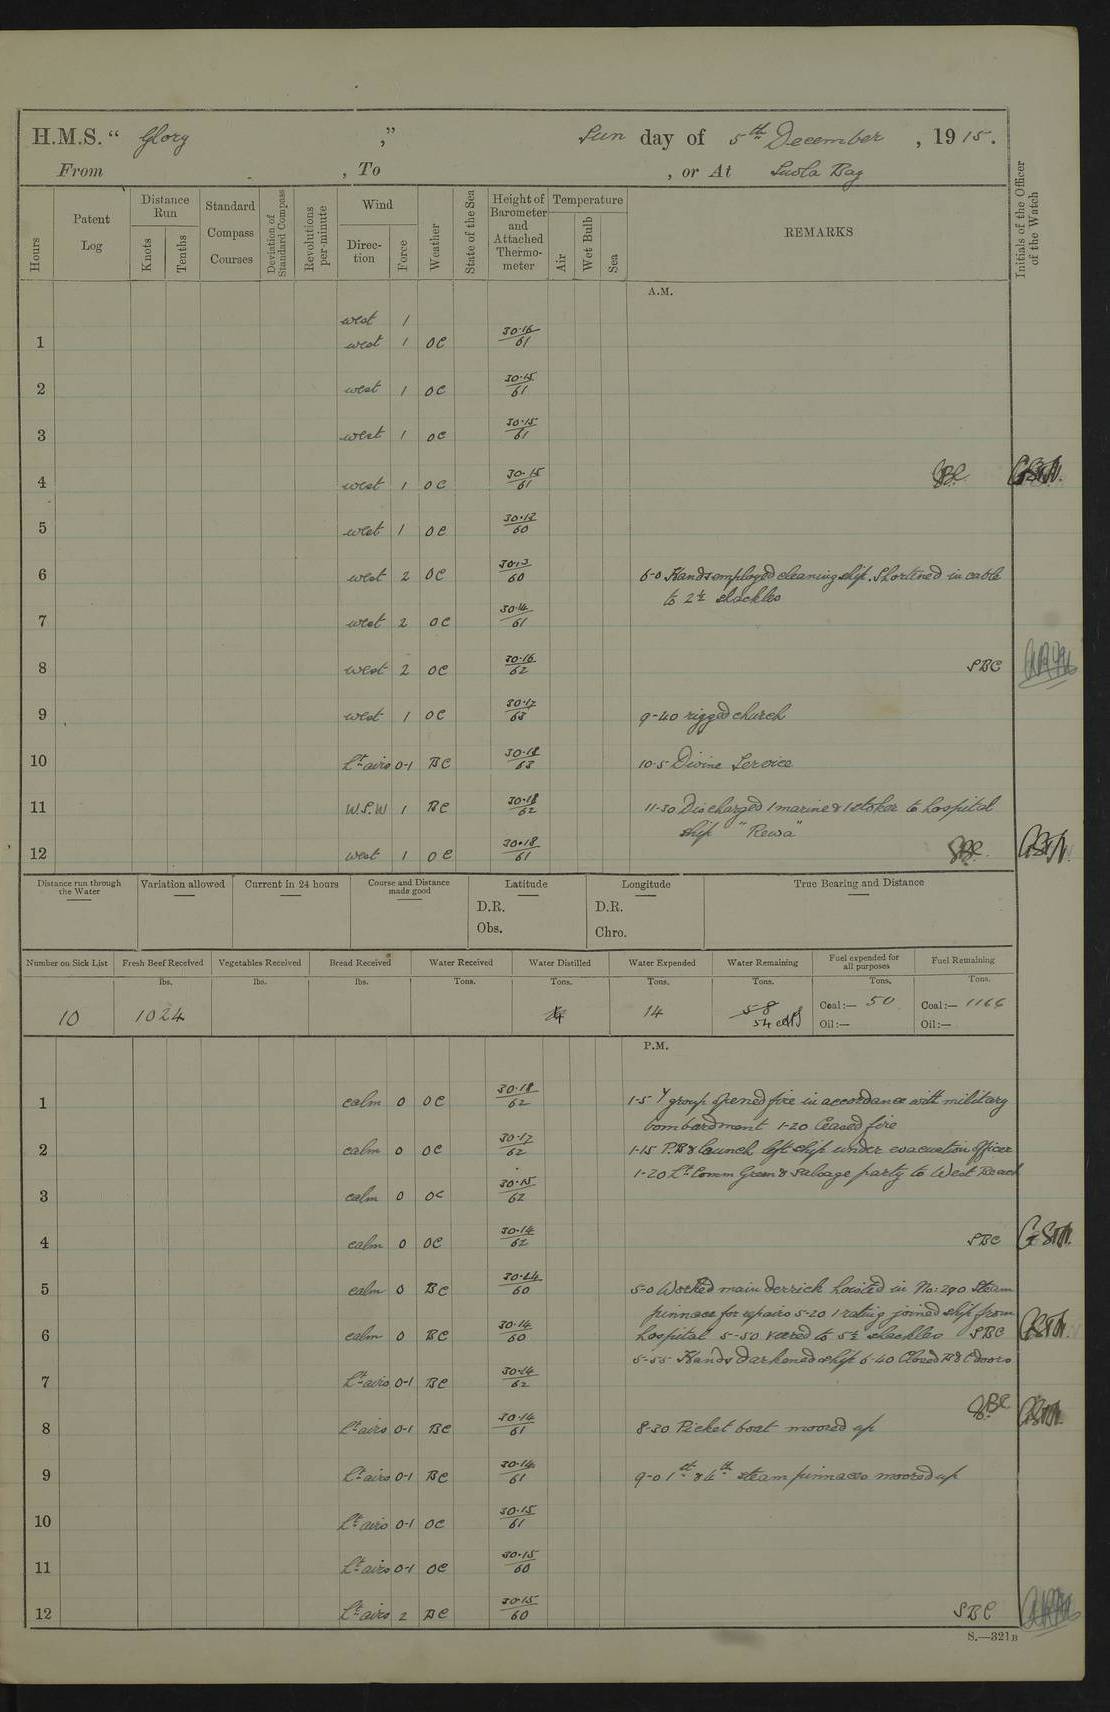 H.M.S. “ Glory ,” Sun day of 5th December , 19 15.
From , To , or At Suvla Bay
Hours
Patent Log
Distance Run
Knots
Tenths
Standard Compass Courses
Deviation of Standard Compass
Revolutions per-minute
Wind
Direction
Force
Weather
State of the Sea
Height of Barometer and Attached Thermometer
Temperature
Air
Wet Bulb
Sea
REMARKS
Initials of the Officer of the Watch
A.M.
west 1
1 west 1 OC 30·16/61
2 west 1 OC 30·15/61
3 west 1 OC 30·15/61
4 west 1 OC 30·15/61
5 west 1 OC 30·13/60
6 west 2 OC 30·13/60 6-0 Hands employed cleaning ship. Shortened in cable
to 2½ shackles
7 west 2 OC 30·14/61
8 west 2 OC 30·16/62 SBC
9 west 1 OC 30·17/63 9-40 rigged church
10 Lt airs 0-1 BC 30·18/63 10-5 Divine Service
11 W.S.W 1 BC 30·18/62 11-30 Discharged 1 marine & 1 stoker to hospital
ship "Rewa"
12 west 1 OC 30·18/61
Distance run through the Water
Variation allowed
Current in 24 hours
Course and Distance made good
Latitude
D.R.
Obs.
Longitude
D.R.
Chro.
True Bearing and Distance
Number on Sick List
Fresh Beef Received
Vegetables Received
Bread Received
Water Received
Water Distilled
Water Expended
Water Remaining
Fuel expended for all purposes
Fuel Remaining
lbs. lbs. lbs. Tons. Tons. Tons. Tons. Tons. Tons.
10 1024 14 58 Coal:— 50 Coal:— 1166
54 Oil:— Oil:—
P.M.
1 calm 0 OC 30·18/62 1-5 Y group opened fire in accordance with military
bombardment 1-20 Ceased fire
2 calm 0 OC 30·17/62 1-15 P.B & launch left ship under evacuation Officer
1-20 Lt Comm Green & Salvage party to West Beach
3 calm 0 OC 30·15/62
4 calm 0 OC 30·14/62 SBC
5 calm 0 BC 30·14/60 5-0 Worked main derrick hoisted in No: 290 Steam
pinnace for repairs 5-20 1 rating joined ship from
6 calm 0 BC 30·14/60 hospital 5-50 veered to 5½ shackles SBC
5-55 Hands darkened ship 6-40 Closed B & C doors
7 Lt airs 0-1 BC 30·14/62
SBC
8 Lt airs 0-1 BC 30·14/61 8-30 Picket boat moored up
9 Lt airs 0-1 BC 30·14/61 9-0 1st & 4th steam pinnaces moored up
10 Lt airs 0-1 OC 30·15/61
11 Lt airs 0-1 OC 30·15/60
12 Lt airs 2 BC 30·15/60 SBC
S.—321B